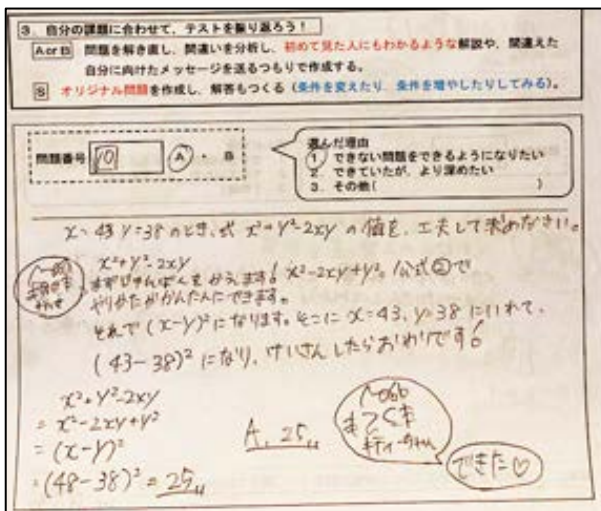 3 自分の課題に合わせて、テストを振り返ろう！
A or B 問題を解き直し、間違いを分析し、初めて見た人にもわかるような解説や、間違えた
自分に向けたメッセージを送るつもりで作成する。
S オリジナル問題を作成し、解答もつくる（条件を変えたり、条件を増やしたりしてみる）。
問題番号 10 A ・ B
選んだ理由
1 できない問題をできるようになりたい
2. できていたが、より深めたい
3. その他( )
x=43 y=38 のとき、式 x²+y²-2xy の値を、工夫して求めなさい。
x²+y²-2xy
まずじゅんばんをかえます! x²-2xy+y² 公式②で
やりかたがかんたんにできます。
それで (x-y)² になります。そこに x=43, y=38 にいれて、
(43-38)² になり、けいさんしたらおわりです!
x²+y²-2xy
= x²-2xy+y²
= (x-y)²
= (48-38)² = 25
A. 25
P.60
できた♡